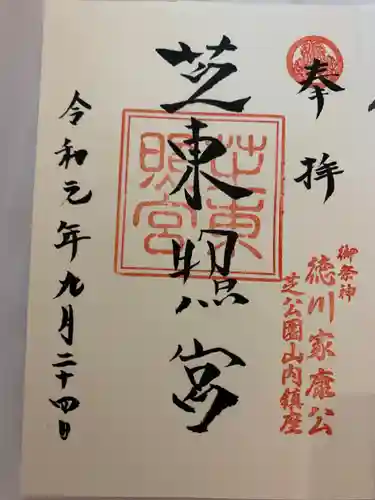 奉拝
御祭神
徳川家康公
芝公園山内鎮座
芝東照宮
芝東
照宮
令和元年九月二十四日